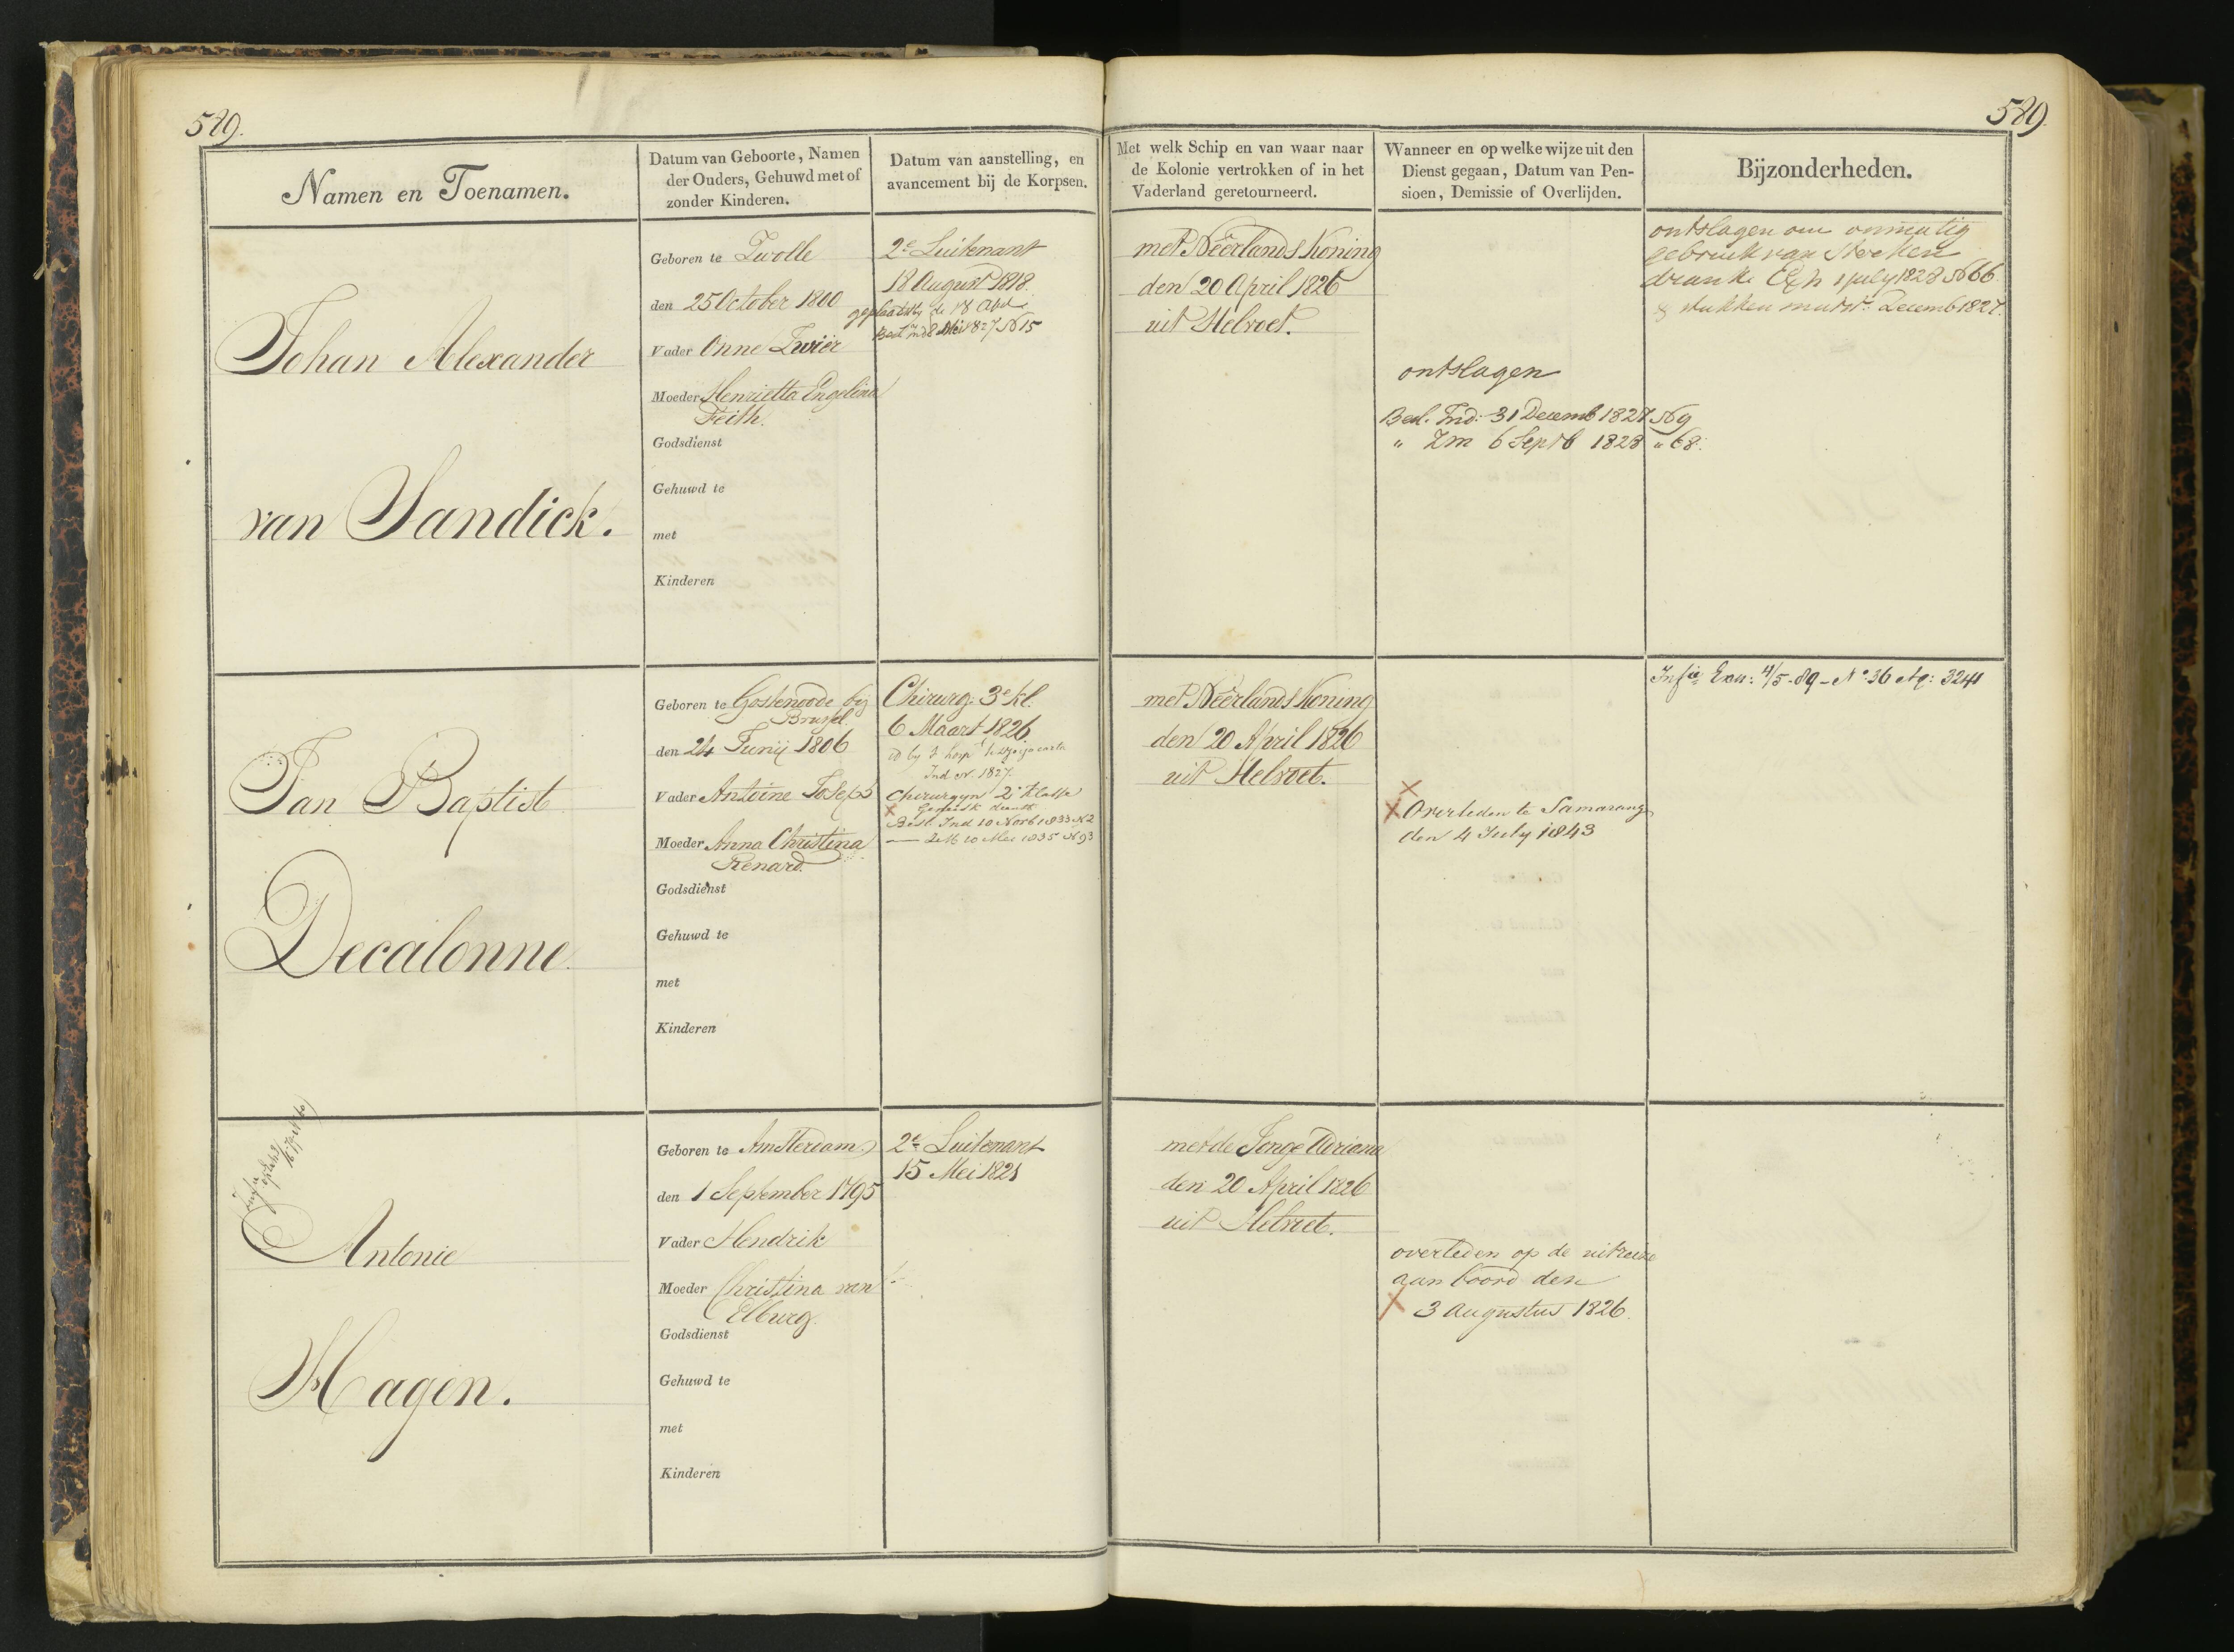 589.
589.
Namen en Toenamen.
Datum van Geboorte, Namen
der Ouders, Gehuwd met of
zonder Kinderen.
Datum van aanstelling, en
avancement bij de Korpsen.
Met welk Schip en van waar naar
de Kolonie vertrokken of in het
Vaderland geretourneerd.
Wanneer en op welke wijze uit den
Dienst gegaan, Datum van Pen-
sioen, Demissie of Overlijden.
Bijzonderheden.
Johan Alexander
van Sandick.
Geboren te Zwolle
den 25 October 1800
Vader Onne Zwier
Moeder Henrietta Engelina
Feith.
Godsdienst
Gehuwd te
met
Kinderen
2e Luitenant
18 August 1818.
geplaatst by de 18 Afd:
Besl Ind 8 Mei 1827 No 15
met Neerlands Koning
den 20 April 1826
uit Helvoet.
ontslagen
Besl. Ind: 31 Decemb 1827 No 9
" Zm 6 Septb 1828 " 68.
ontslagen om onmatig
gebruik van sterken
drank Exh 1 july 1828 No 66
stukken Decemb 1827.
Jan Baptist
Decalonne.
Geboren te Gostenoode bij
Brussel.
den 24 Junij 1806
Vader Antoine Joseph
Moeder Anna Christina
Renard.
Godsdienst
Gehuwd te
met
Kinderen
Chirurg: 3e kl.
6 Maart 1826
Ind 1827.
Chirurgyn 2e Klasse
Besl. Ind 10 Novb 1833 N 2
10 Mei 1835 N 93
met Neerlands Koning
den 20 April 1826
uit Helvoet.
Overleden te Samarang
den 4 July 1843
Infie Exh: 4/5-89 - No 36 Ag: 3241
Antonie
Hagen.
Geboren te Amsterdam
den 1 September 1795
Vader Hendrik
Moeder Christina van
Elburg.
Godsdienst
Gehuwd te
met
Kinderen
2e Luitenant
15 Mei 1821
met de Jonge Adriana
den 20 April 1826
uit Helvoet.
overleden op de uitreize
aan boord den
3 Augustus 1826.